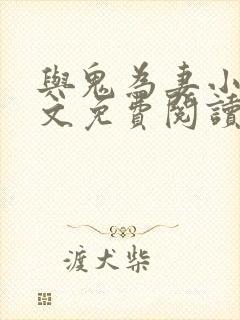 與鬼為妻小
文免費閱讀
渡犬柴